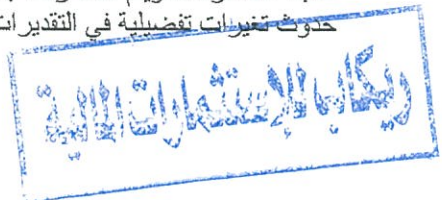 حدوث تغيرات تفضيلية في التقديرات
ريكاب للإستثمارات المالية